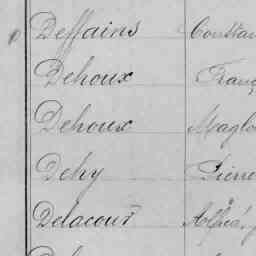 Deffains Constan
Dehoux Franç
Dehoux Maglo
Dehy Pierre
Delacourt